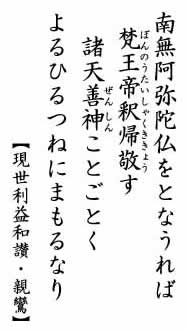 南無阿弥陀仏をとなうれば
梵王帝釈帰敬す
ぼんのうたいしゃくききょう
諸天善神ことごとく
ぜんしん
よるひるつねにまもるなり
【現世利益和讃・親鸞】